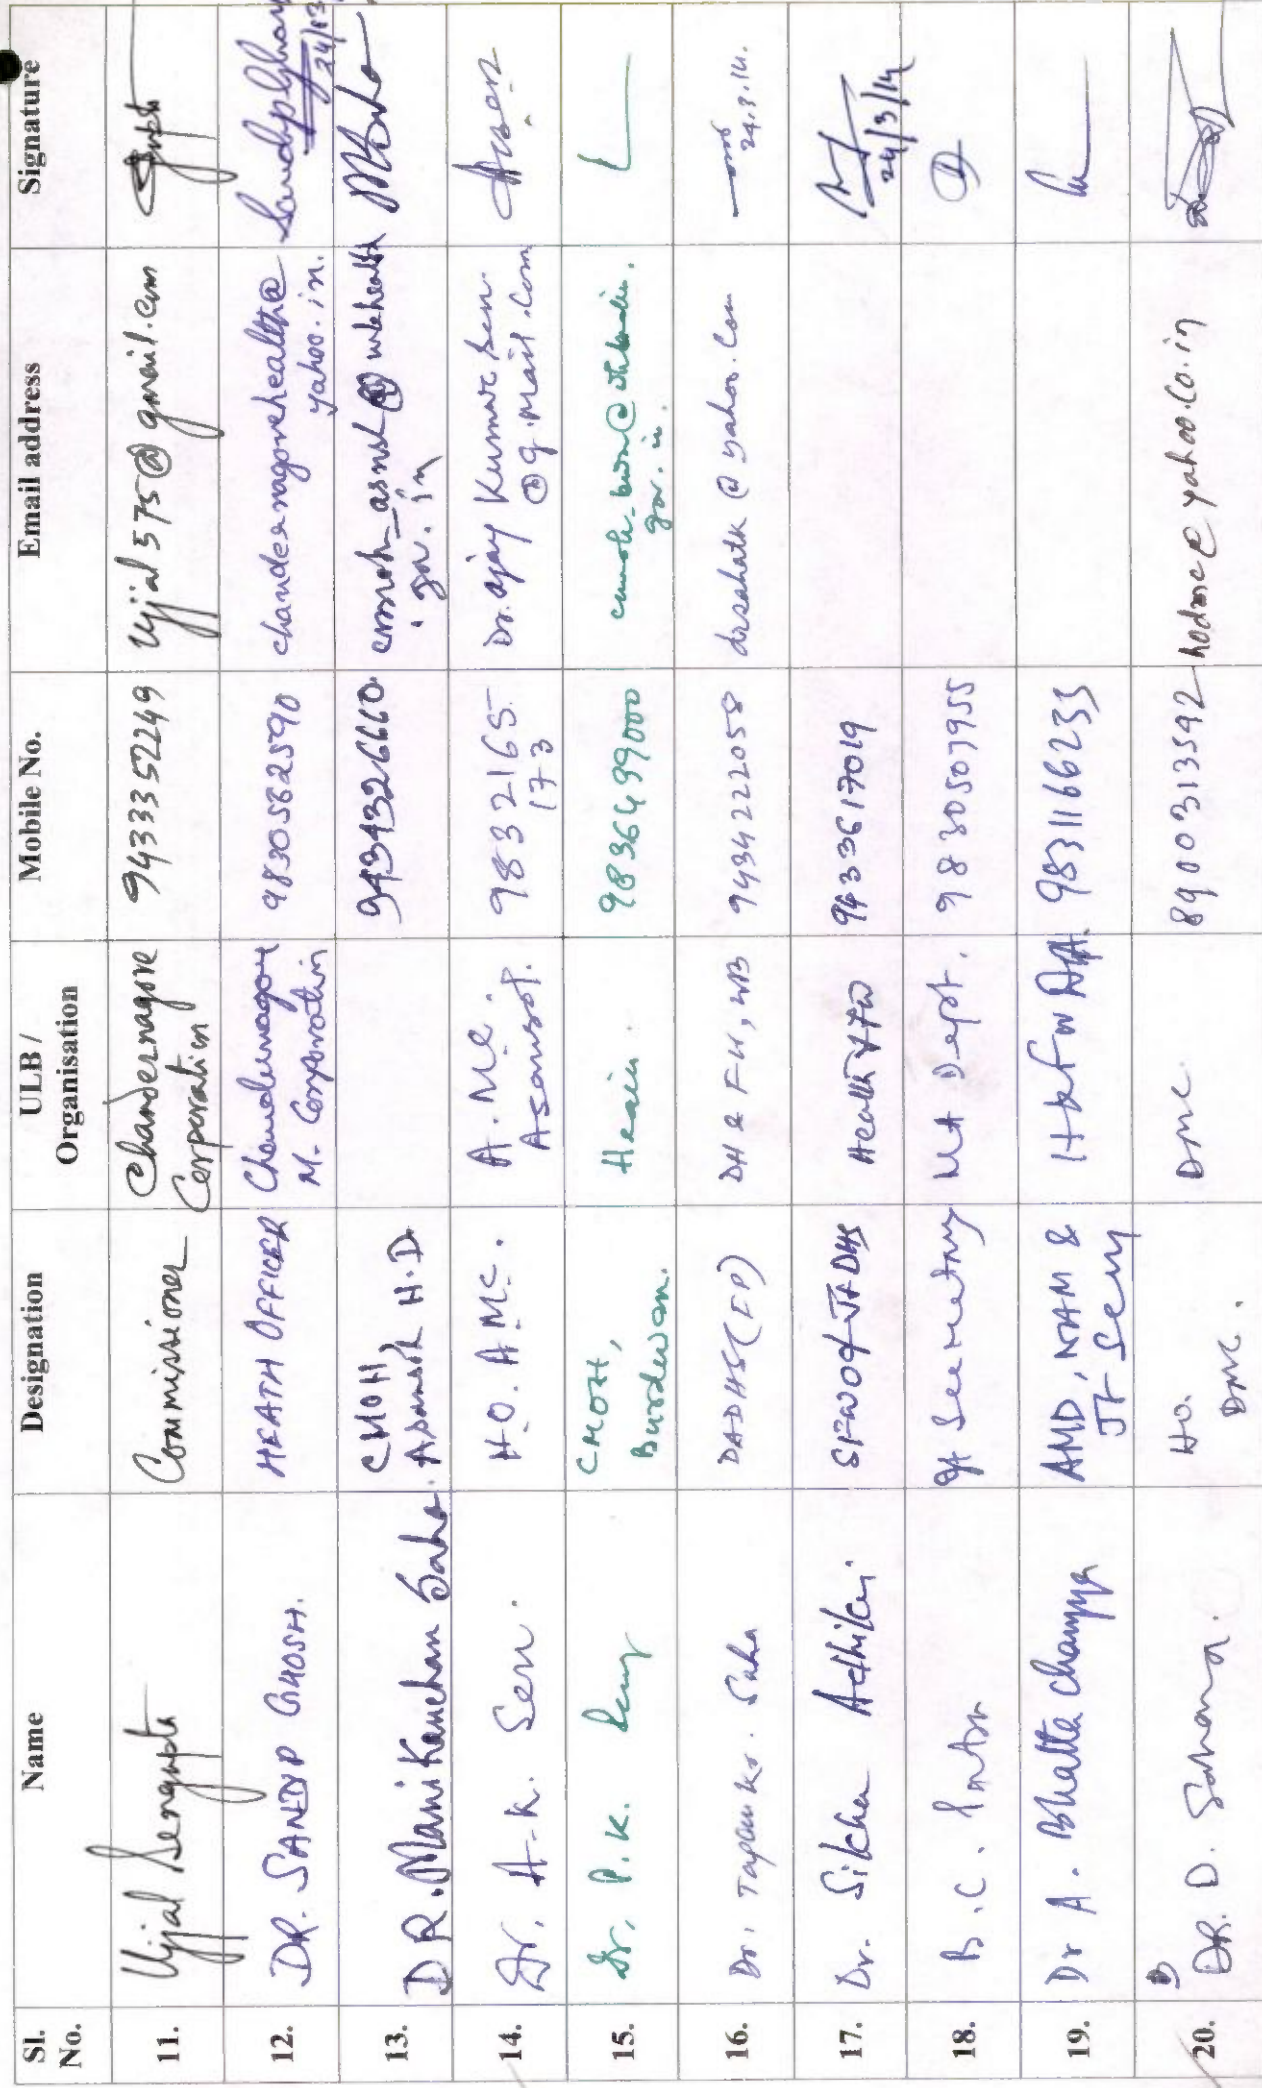 Sl. No. Name Designation ULB / Organisation Mobile No. Email address Signature
11. Ujjal Sengupta Commissioner Chandernagore Corporation 9433352249 ujjal575@gmail.com
12. DR. SANDIP GHOSH. HEATH OFFICER Chandernagore M. Corporation 9830562590 chandernagorehealth@yahoo.in. Sandip Ghosh 24/03
13. DR. Mani Kanchan Saha CMOH, Asansol H.D. 9434326660 cmoh_asnsl@wbhealth.gov.in MKSaha
14. Dr. A.K. Sen. H.O. A.M.C. A.M.C. Asansol. 9832165173 Dr.ajay Kumar Sen @g.mail.com AKSen
15. Dr. P.K. CMOH, Burdwan. 9836499000
16. Dr. Tapan Kr. Saha DADHS (FP) DH & FW, WB 9434222058 drsahatk@yahoo.com 24.3.14.
17. Dr. Sikha Adhikari SFWO & Jt DHS Health & FW 9433617019 24/3/14
18. B.C. Jt Secretary MA Dept. 9830507955
19. Dr A. Bhattacharyya AMD, NHM & Jt Secy H & FW 9831166233
20. DR. D. Sahana. HO. DMC. DMC 8900313592 hodmc@yahoo.co.in